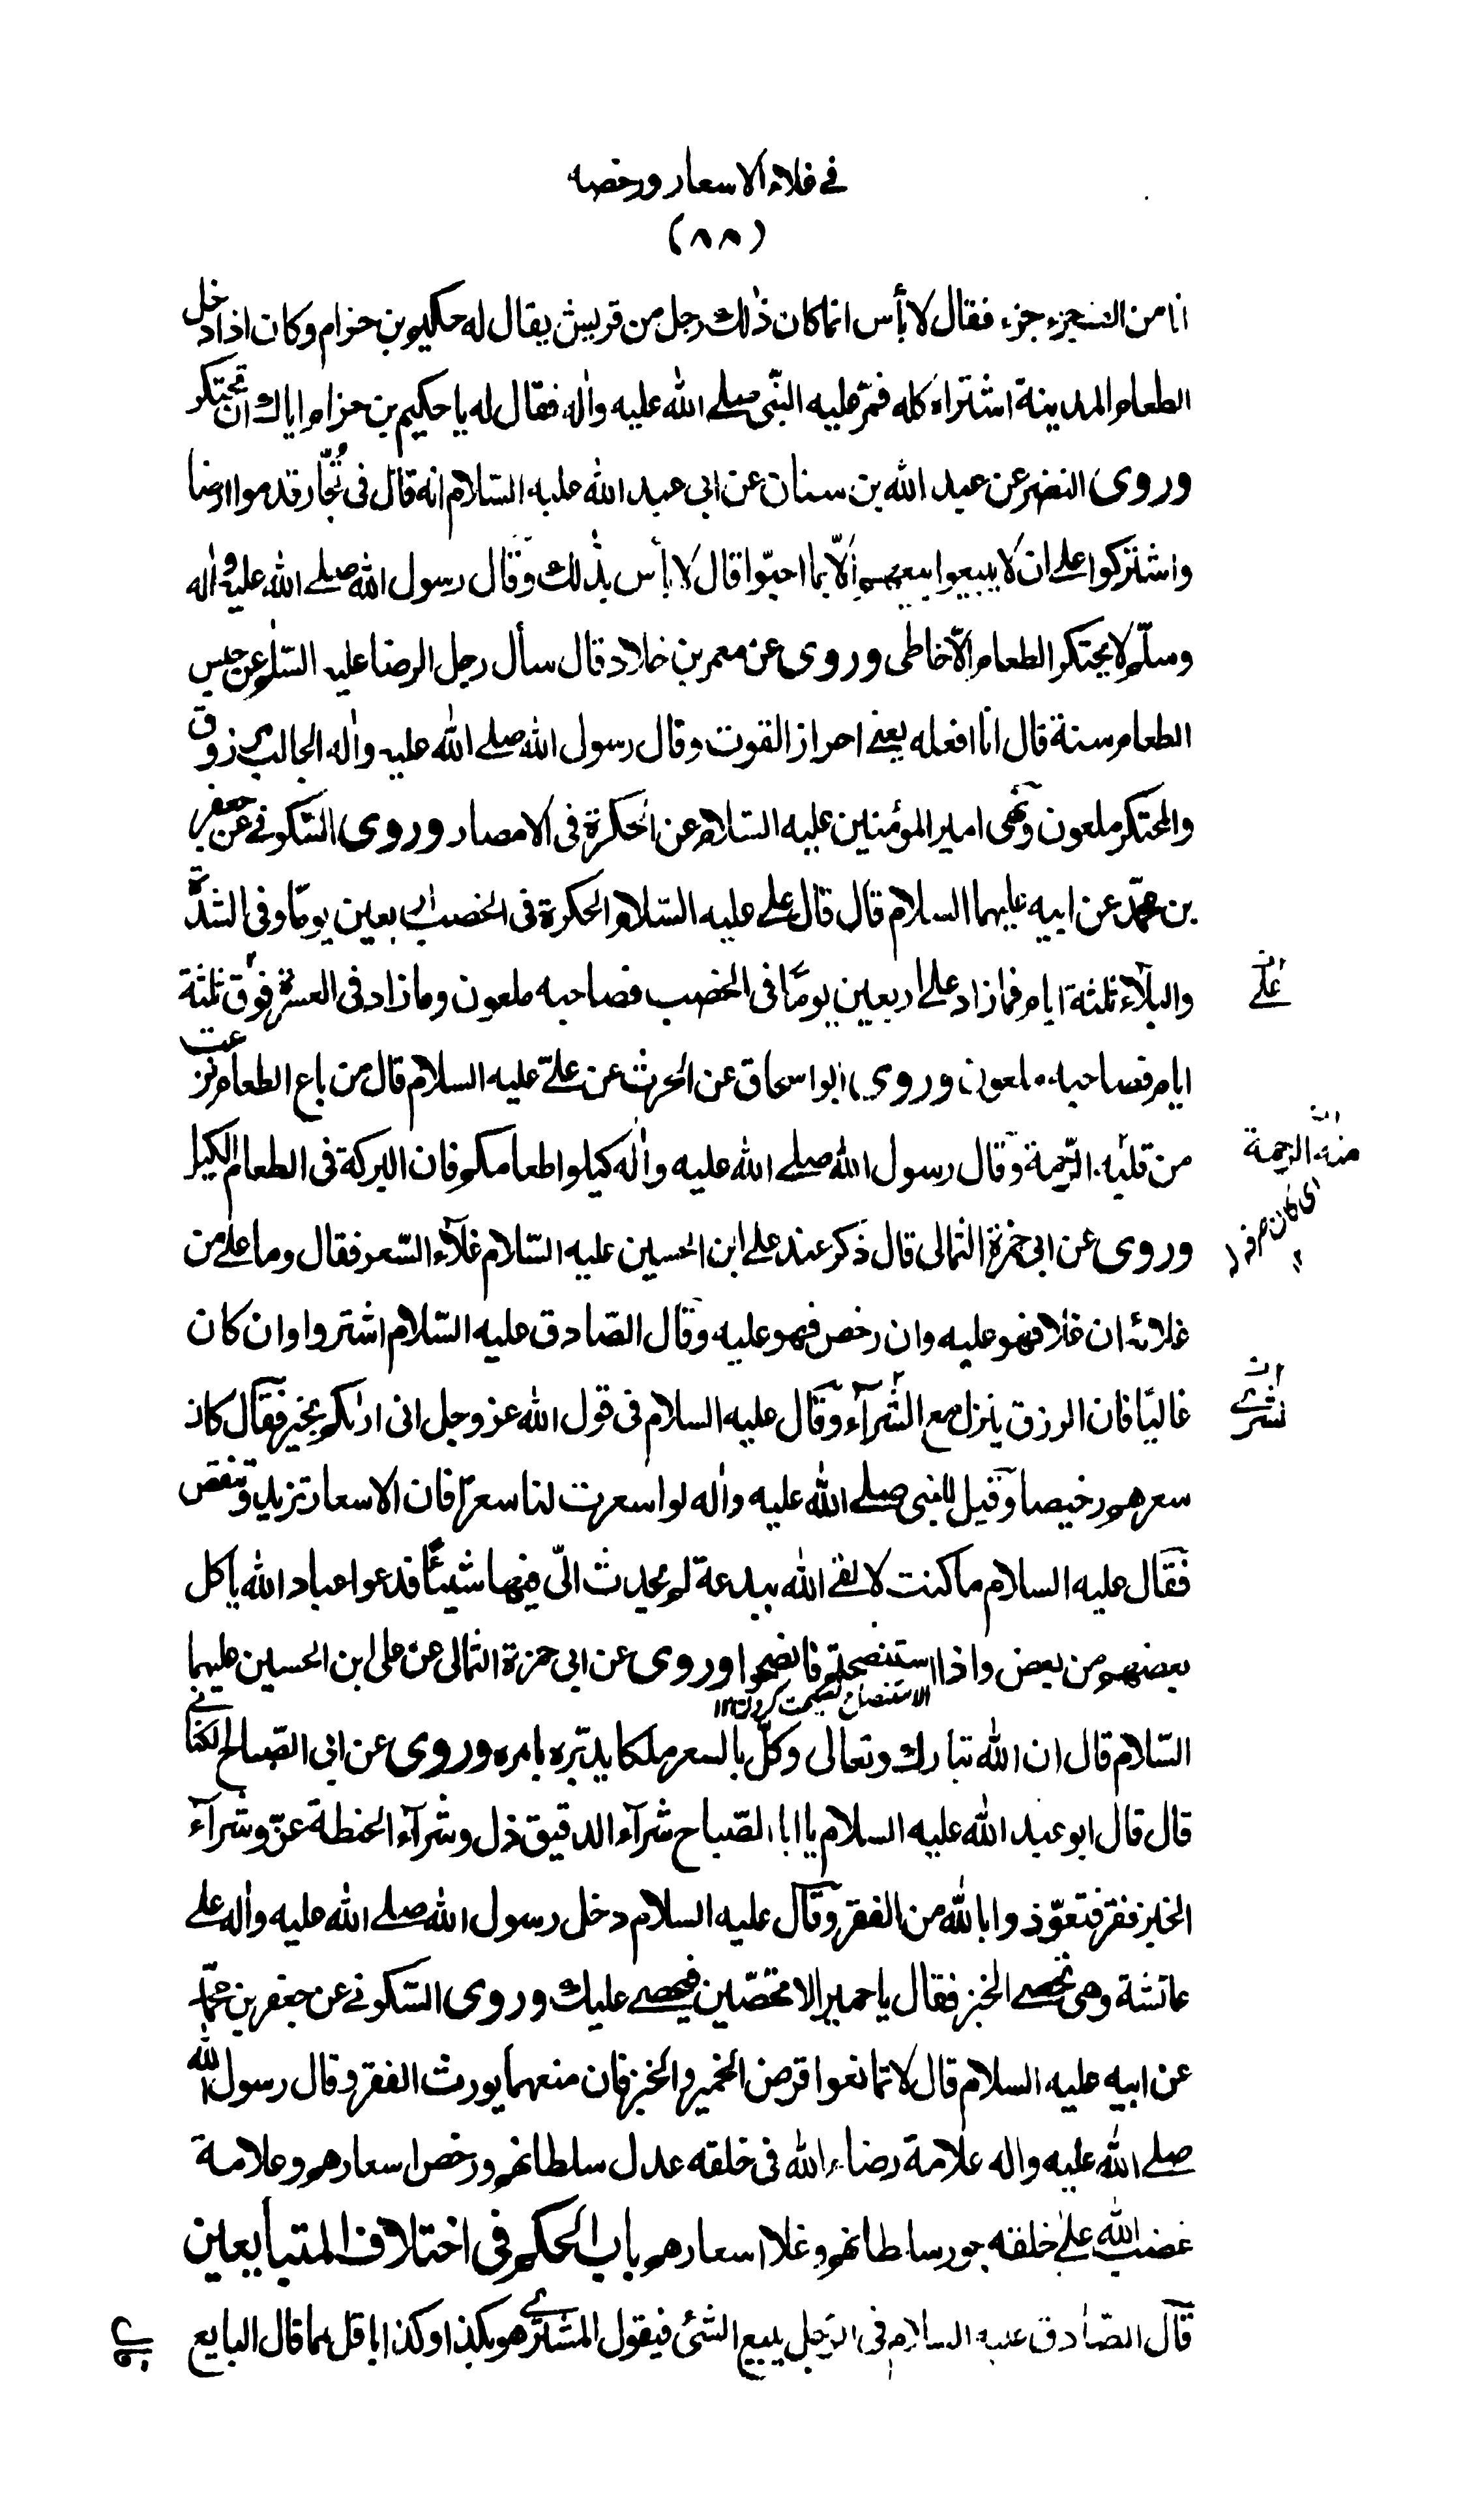 في غلاء الاسعار ورخصه
(٨٨)
انا من التسعة جزء فقال لا بأس انما كان ذٰلك رجل من قريش يقال له حكيم بن حزام وكان اذا دخل
الطعام المدينة اشتراه كله فمرّ عليه النّبى صلے الله عليه واٰله فقال له يا حكيم بن حزام اياك ان تحتكر
وروى النضر عن عبد الله بن سنان عن ابى عبد الله عليه السّلام انه قال فى تُجّار قدموا ارضا
واشتركوا علے ان لا يبيعوا بيعهم الّا بما احبّوا قال لا بأس بذٰلك وقال رسول الله صلے الله عليه واٰله
وسلّم لا يحتكر الطعام الّا خاطى وروى عن معمر بن خلاد قال سأل رجل الرضا عليه السّلام عن حبس
الطعام سنة قال انا افعله يعنے احراز القوت وقال رسول الله صلے الله عليه واٰله الجالب مرزوق
والمحتكر ملعون ونهى امير المؤمنين عليه السّلام عن الحكرة فى الامصار وروى السّكونے عن جعفر
بن محمّد عن ابيه عليهما السلام قال قال علے عليه السّلام الحكرة فى الخصب اربعين يومًا وفى الشدّة
والبلاء ثلثة ايام فما زاد علے اربعين يومًا فى الخصب فصاحبه ملعون وما زاد فى العسرة فوق ثلثة
علے
ايام فصاحبه ملعون وروى ابو اسحاق عن الحرث عن علىّ عليه السلام قال من باع الطعام نزعت
من قلبه الرّحمة وقال رسول الله صلے الله عليه واٰله كيلوا طعامكم فان البركة فى الطعام المكيل
منه الرحمة
وروى عن ابى حمزة الثمالى قال ذكر عند علے ابن الحسين عليه السّلام غلآء السّعر فقال وما علے من
غلائه ان غلا فهو عليه وان رخص فهو عليه وقال الصّادق عليه السّلام اشتروا وان كان
غاليًا فان الرزق ينزل مع الشّرآء وقال عليه السلام فى قول الله عز وجل انى اراكم بخير فقال كان
سعرهم رخيصا وقيل للنبى صلے الله عليه واٰله لو اسعرت لنا سعرًا فان الاسعار تزيد وتنقص
فقال عليه السلام ما كنت لالقے الله ببدعة لم يحدث الىّ فيها شيئًا فدعوا عباد الله يأكل
بعضهم من بعض واذا استنصحتم فانصحوا وروى عن ابى حمزة الثمالى عن على ابن الحسين عليهما
الاستنصاح نصيحت كردن ١٢
السّلام قال ان الله تبارك وتعالى وكّل بالسعر ملكا يدبّره بامره وروى عن ابى الصّباح الكنانے
قال قال ابو عبد الله عليه السلام يا ابا الصّباح شرآء الدقيق ذل وشرآء الحنطة عزّ وشرآء
الخبز فقر فتعوّذوا بالله من الفقر وقال عليه السلام دخل رسول الله صلے الله عليه واٰله علے
عائشة وهى تحصے الخبز فقال يا حميرا لا تحصّين فيحصے عليك وروى السّكونے عن جعفر بن محمّد
عن ابيه عليه السلام قال لا تمانعوا قرض الخمير والخبز فان منعهما يورث الفقر وقال رسول الله
صلے الله عليه واله علامة رضاء الله فى خلقه عدل سلطانهم ورخص اسعارهم وعلامة
غضب الله علے خلقه جور سلطانهم وغلا اسعارهم باب الحكم فى اختلاف المتبايعين
قال الصّادق عليه السلام فى الرّجل يبيع الشئ فيقول المشترے هو بكذا وكذا باقل مما قال البايع